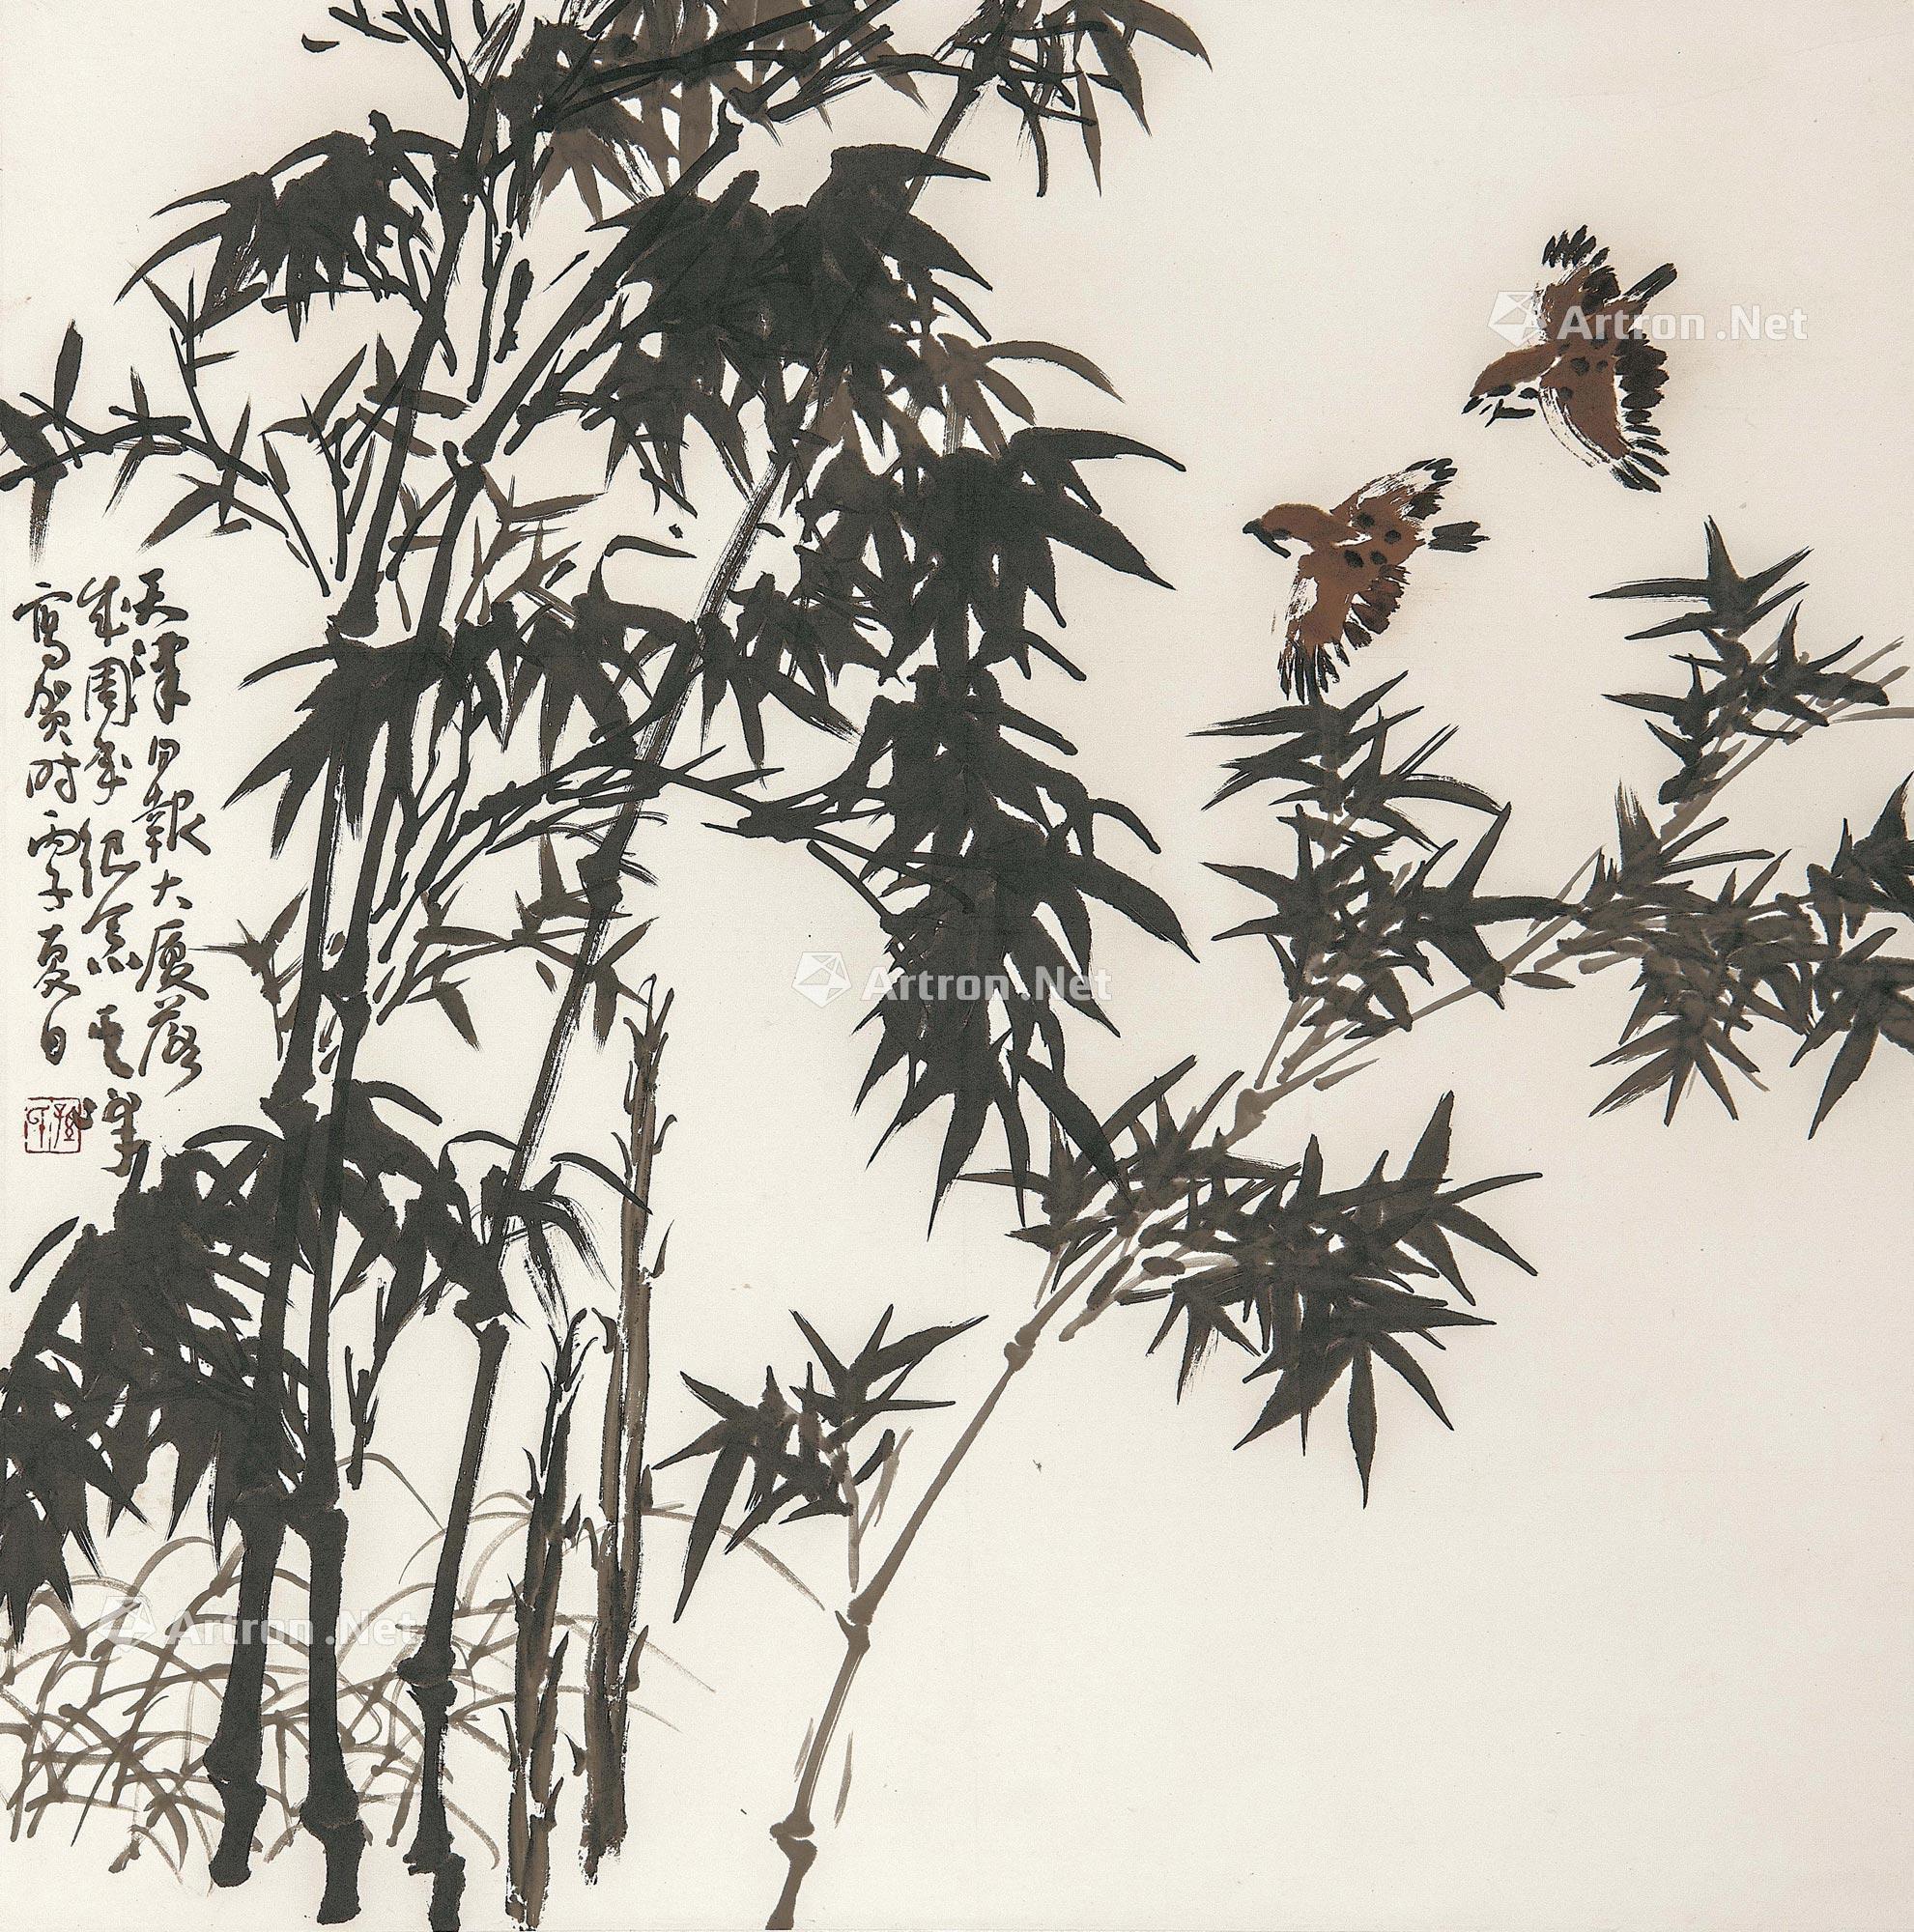 天津日報大廈落
成周年纪念其峰
寫賀时丙子夏日
Artron.Net
Artron.Net
Artron.Net